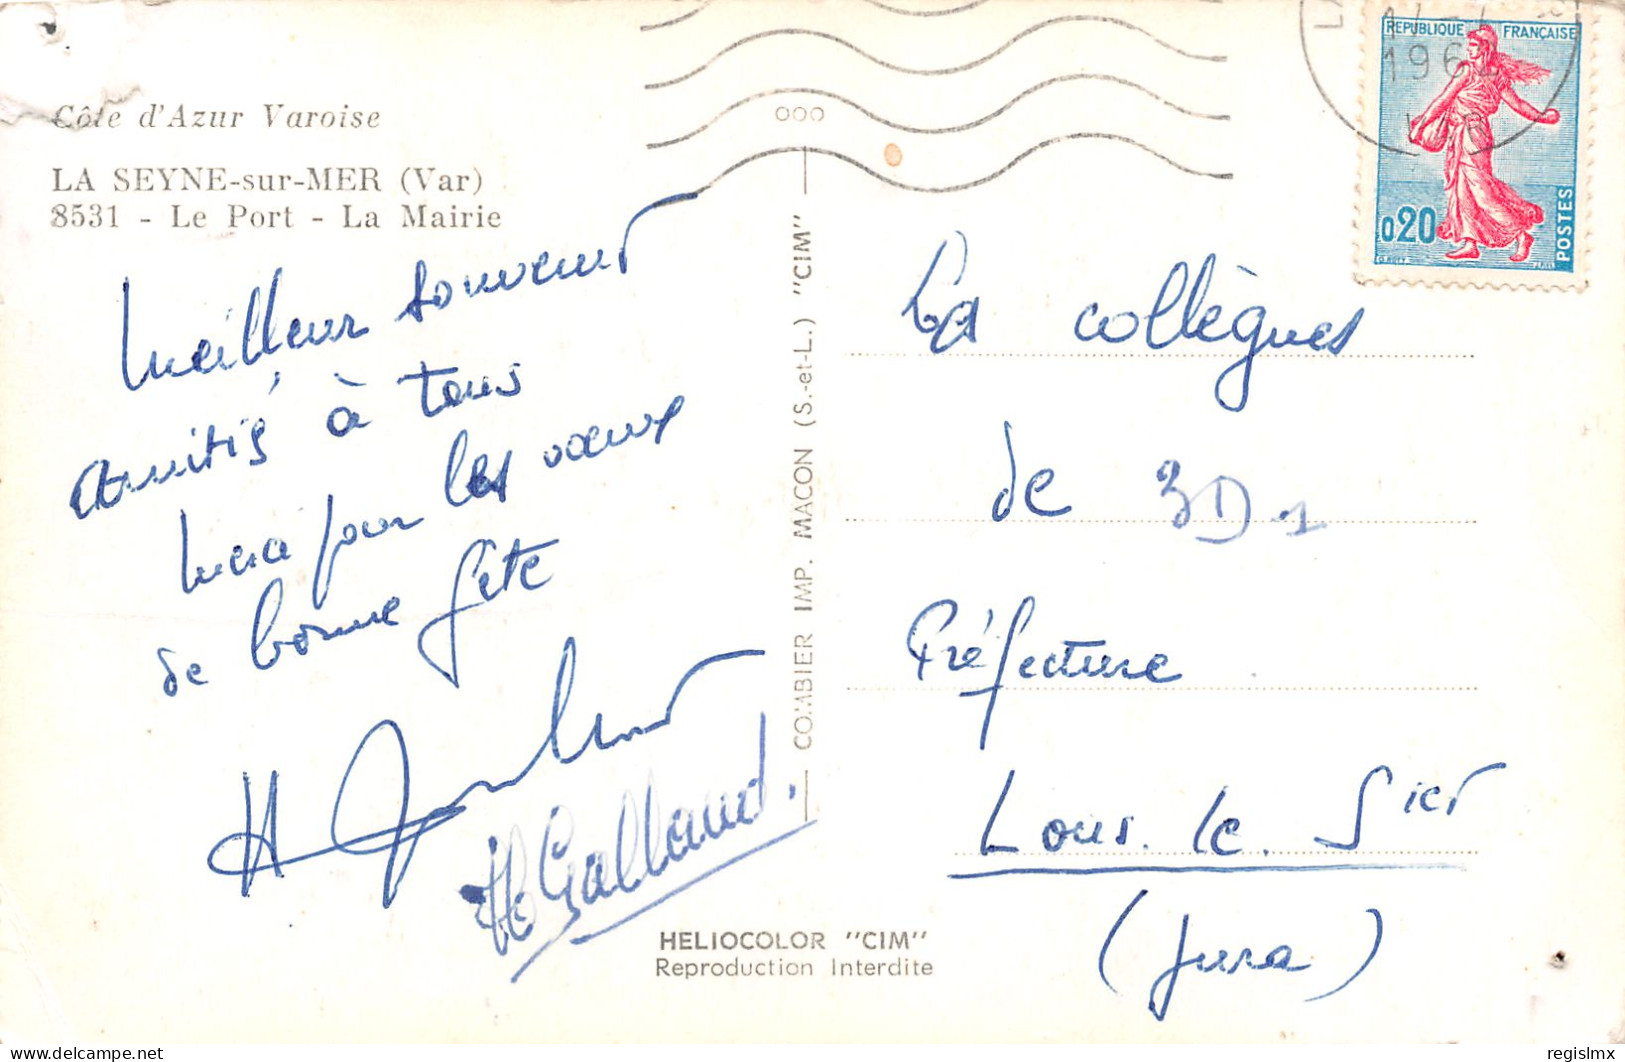 Côte d'Azur Varoise
LA SEYNE-sur-MER (Var)
8531 - Le Port - La Mairie
Meilleur souvenir
amitiés à tous
merci pour les vœux
de bonne fête
H Galland.
COMBIER IMP. MACON (S.-et-L.) "CIM"
HELIOCOLOR "CIM"
Reproduction Interdite
REPUBLIQUE FRANÇAISE
0,20
POSTES
VAR
Les collègues
de 3D-1
Préfecture
Lons. le. Sier
(Jura)
regislmx